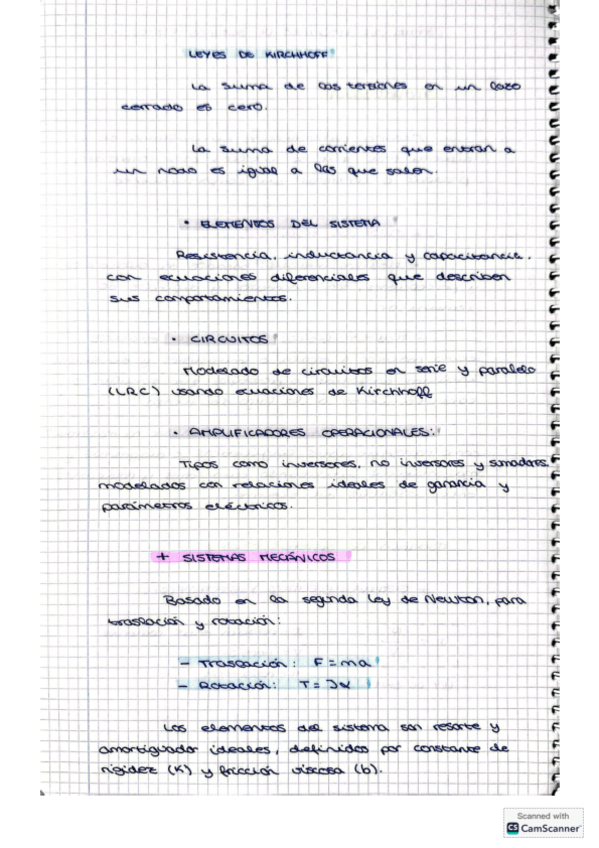 LEYES DE KIRCHHOFF
La suma de las tensiones en un lazo
cerrado es cero.
La suma de corrientes que entran a
un nodo es igual a las que salen.
• ELEMENTOS DEL SISTEMA
Resistencia, inductancia y capacitancia,
con ecuaciones diferenciales que describen
sus comportamientos.
• CIRCUITOS
Modelado de circuitos en serie y paralelo
(LRC) usando ecuaciones de Kirchhoff
• AMPLIFICADORES OPERACIONALES:
Tipos como inversores, no inversores y sumadores,
modelados con relaciones ideales de ganancia y
parámetros eléctricos.
+ SISTEMAS MECÁNICOS
Basado en la segunda ley de Newton, para
traslación y rotación:
- Traslación: F = ma
- Rotación: T = Jα
Los elementos del sistema son resorte y
amortiguador ideales, definidos por constante de
rigidez (K) y fricción viscosa (b).
Scanned with
CS CamScanner